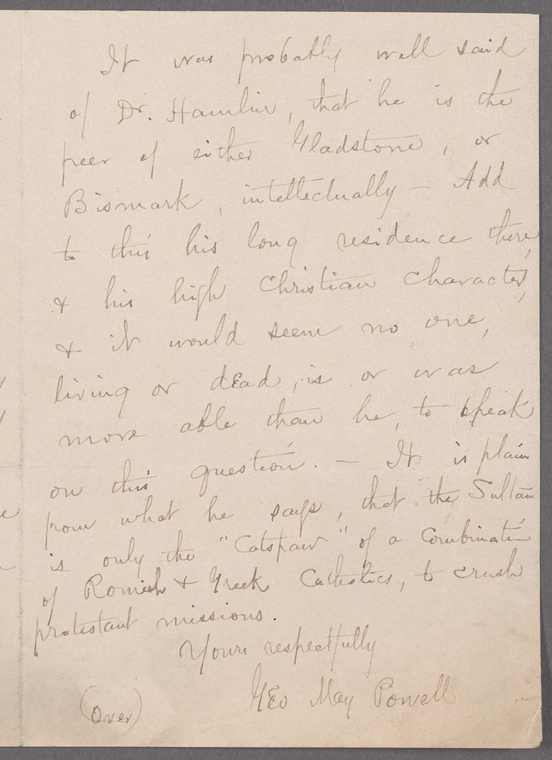 It was probably well said
of Dr. Hamlin, that he is the
peer of either Gladstone, or
Bismark, intellectually — Add
to this his long residence there,
& his high Christian character,
& it would seem no one,
living or dead, is or was
more able than he, to speak
on this question. — It is plain
from what he says, that the Sultan
is only the "Catspaw" of a Combination
of Romish & Greek Catholics, to crush
protestant missions.
Yours respectfully
Geo May Powell
(Over)